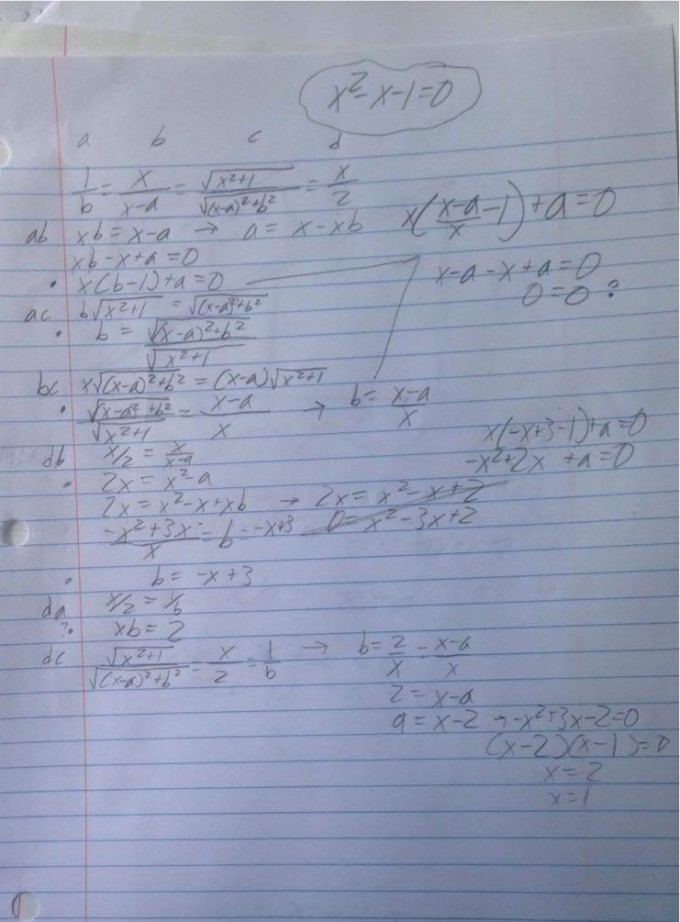 x²-x-1=0
a b c d
1/b = x/(x-a) = √(x²+1)/√((x-a)²+b²) = x/2
x((x-a)/x -1)+a=0
ab xb = x-a → a = x-xb
xb-x+a=0
x-a-x+a=0
• x(b-1)+a=0
0=0 ?
ac b√(x²+1) = √((x-a)²+b²)
• b = √((x-a)²+b²)/√(x²+1)
bc x√((x-a)²+b²) = (x-a)√(x²+1)
• √((x-a)²+b²)/√(x²+1) = (x-a)/x → b = (x-a)/x
x(-x+3-1)+a=0
x/2 = x/(x-a)
-x²+2x +a=0
• 2x = x²-a
2x = x²-x+xb → 2x = x²-x+2
(-x²+3x)/x = b = -x+3 0=x²-3x+2
• b = -x+3
da x/2 = 1/b
?• xb = 2
dc √(x²+1)/√((x-a)²+b²) = x/2 = 1/b → b = 2/x = (x-a)/x
2 = x-a
a = x-2 → -x²+3x-2=0
(x-2)(x-1)=0
x=2
x=1